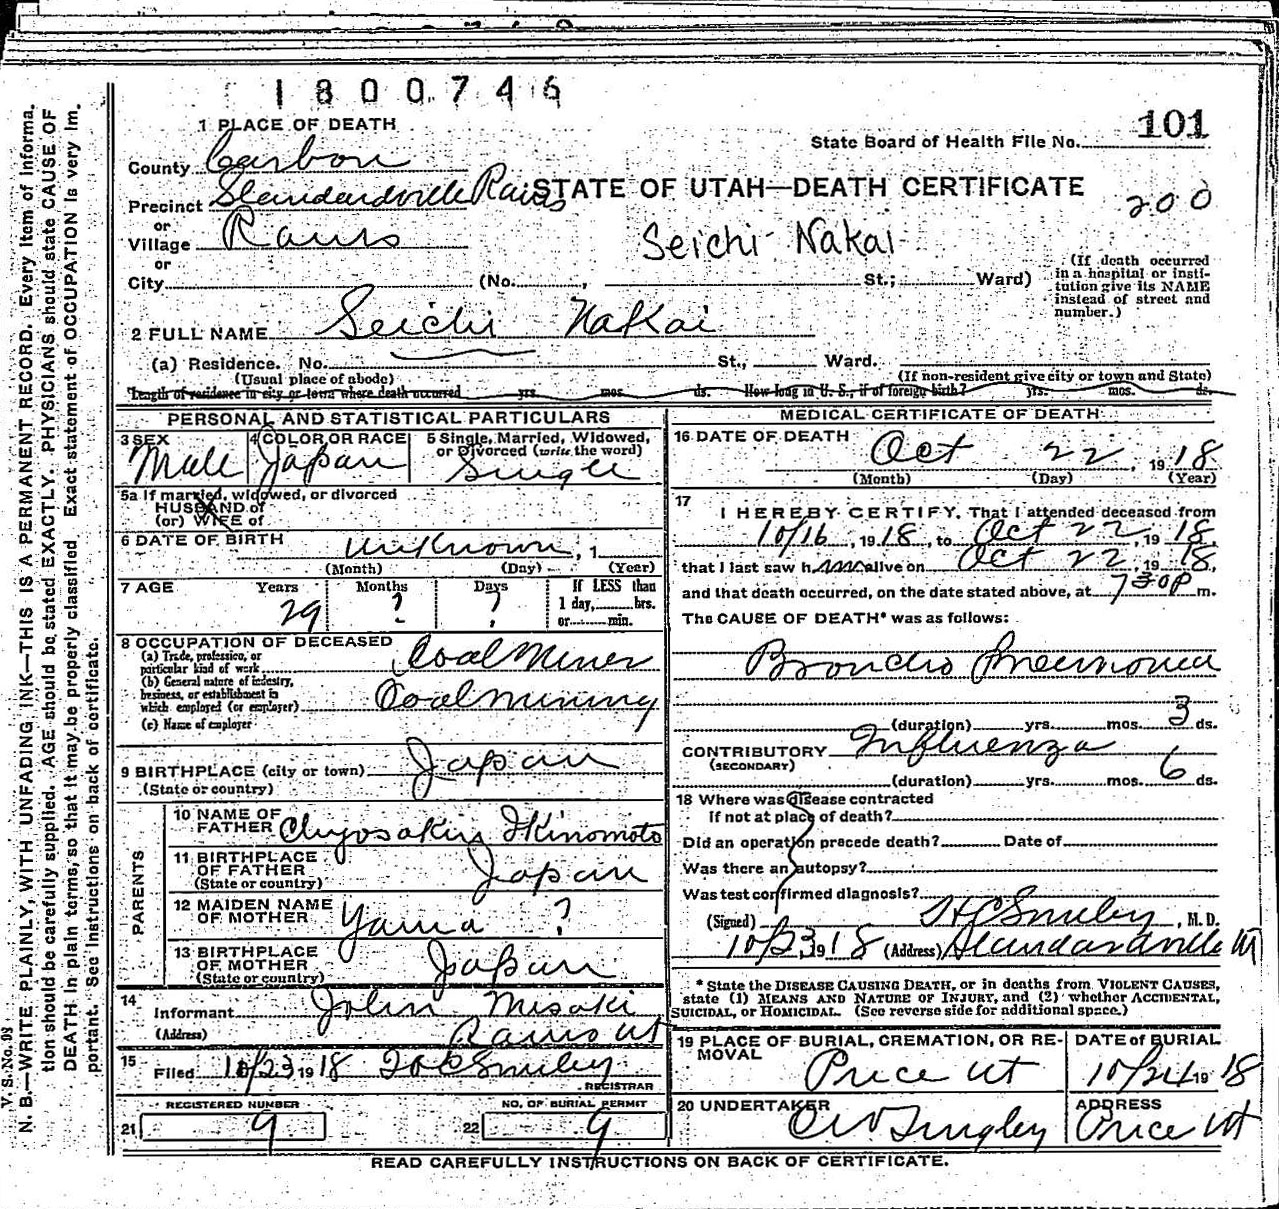 1800746
101
1 PLACE OF DEATH
State Board of Health File No.
County Carbon
Precinct Standardville Rains
STATE OF UTAH—DEATH CERTIFICATE
200
or
Village Rains
Seichi Nakai
or
City (No. , St.; Ward)
(If death occurred in a hospital or institution give its NAME instead of street and number.)
2 FULL NAME Seichi Nakai
(a) Residence. No. St., Ward.
(Usual place of abode) (If non-resident give city or town and State)
Length of residence in city or town where death occurred yrs. mos. ds. How long in U. S., if of foreign birth? yrs. mos. ds.
PERSONAL AND STATISTICAL PARTICULARS
3 SEX Male
4 COLOR OR RACE Japan
5 Single, Married, Widowed, or Divorced (write the word) Single
5a If married, widowed, or divorced
HUSBAND of
(or) WIFE of
6 DATE OF BIRTH unknown, 1
(Month) (Day) (Year)
7 AGE Years 29 Months ? Days ?
If LESS than
1 day, hrs.
or min.
8 OCCUPATION OF DECEASED
(a) Trade, profession, or
particular kind of work Coal Miner
(b) General nature of industry,
business, or establishment in
which employed (or employer) Coal mining
(c) Name of employer
9 BIRTHPLACE (city or town) Japan
(State or country)
PARENTS
10 NAME OF
FATHER Chyosakiy Ikinomoto
11 BIRTHPLACE
OF FATHER Japan
(State or country)
12 MAIDEN NAME
OF MOTHER Yama ?
13 BIRTHPLACE
OF MOTHER Japan
(State or country)
14
Informant John Misaki
(Address) Rains Ut
15
Filed 10/23 1918 H C Smiley
REGISTRAR
REGISTERED NUMBER
21 9
NO. OF BURIAL PERMIT
22 9
MEDICAL CERTIFICATE OF DEATH
16 DATE OF DEATH Oct 22, 1918
(Month) (Day) (Year)
17
I HEREBY CERTIFY, That I attended deceased from
10/16, 1918, to Oct 22, 1918,
that I last saw him alive on Oct 22, 1918,
and that death occurred, on the date stated above, at 730P m.
The CAUSE OF DEATH* was as follows:
Broncho Pneumonia
(duration) yrs. mos. 3 ds.
CONTRIBUTORY Influenza
(SECONDARY)
(duration) yrs. mos. 6 ds.
18 Where was disease contracted
if not at place of death?
Did an operation precede death? Date of
Was there an autopsy?
Was test confirmed diagnosis?
(Signed) H C Smiley, M. D.
10/23, 1918 (Address) Standardville Ut
* State the DISEASE CAUSING DEATH, or in deaths from VIOLENT CAUSES,
state (1) MEANS AND NATURE OF INJURY, and (2) whether ACCIDENTAL,
SUICIDAL, or HOMICIDAL. (See reverse side for additional space.)
19 PLACE OF BURIAL, CREMATION, OR RE-
MOVAL
Price Ut
DATE of BURIAL
10/24 1918
20 UNDERTAKER
ADDRESS
Price Ut
READ CAREFULLY INSTRUCTIONS ON BACK OF CERTIFICATE.
V. S. No. 98
N. B.—WRITE PLAINLY, WITH UNFADING INK—THIS IS A PERMANENT RECORD. Every item of informa-
tion should be carefully supplied. AGE should be stated EXACTLY. PHYSICIANS should state CAUSE OF
DEATH in plain terms, so that it may be properly classified. Exact statement of OCCUPATION is very im-
portant. See instructions on back of certificate.